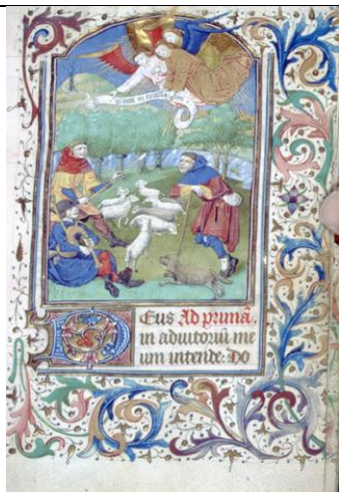 DEus Ad primā.
in adiutoriū me
um intende: Do